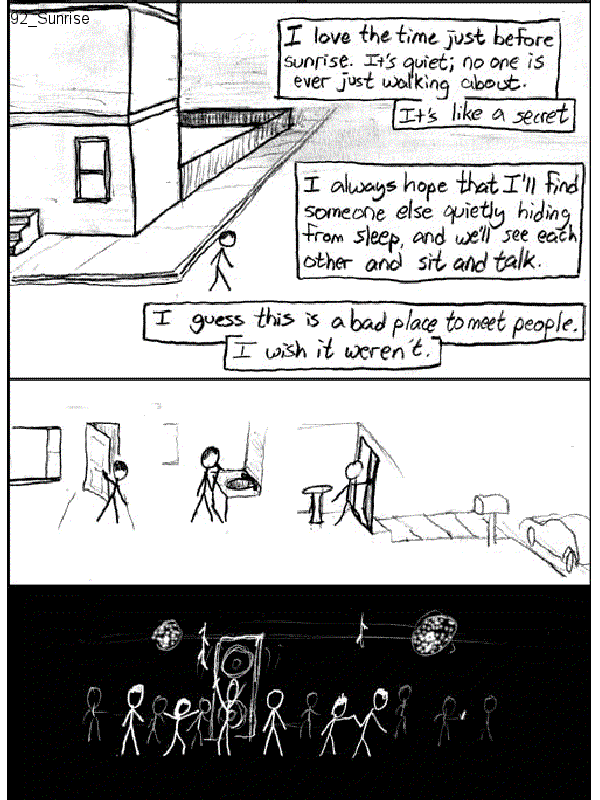 92_Sunrise
I love the time just before
sunrise. It's quiet; no one is
ever just walking about.
It's like a secret
I always hope that I'll find
someone else quietly hiding
from sleep, and we'll see each
other and sit and talk.
I guess this is a bad place to meet people.
I wish it weren't.